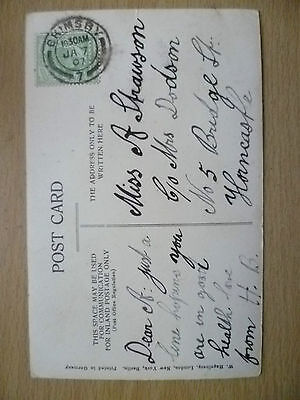 GRIMSBY
10.30AM
JA 7
07
7
POST CARD
THIS SPACE MAY BE USED
FOR COMMUNICATION
FOR INLAND POSTAGE ONLY
(Post Office Regulation)
THE ADDRESS ONLY TO BE
WRITTEN HERE
Dear A. just a
line hoping you
are in good
health love
from H. B.
Miss A Strawson
C/o Mrs Dodson
No 5 Bridge St.
Horncastle
W. Hagelberg, London, New York, Berlin. Printed in Germany